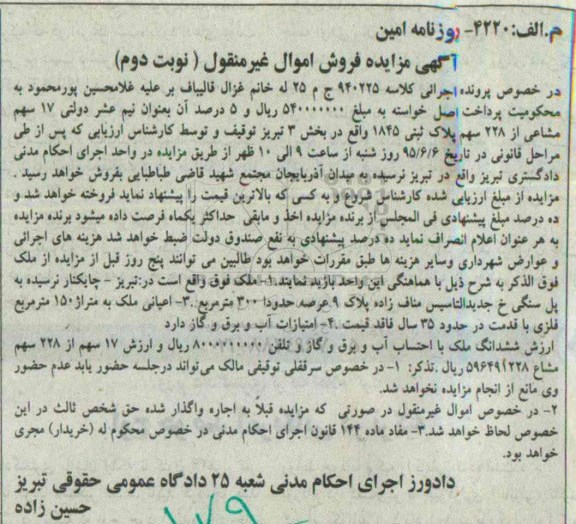 م.الف:۴۲۲۰- روزنامه امین
آگهی مزایده فروش اموال غیرمنقول ( نوبت دوم)
در خصوص پرونده اجرائی کلاسه ۹۴۰۲۲۵ ج م ۲۵ له خانم غزال قالیباف بر علیه غلامحسین پورمحمود به
محکومیت پرداخت اصل خواسته به مبلغ ۵۴۰۰۰۰۰۰۰ ریال و ۵ درصد آن بعنوان نیم عشر دولتی ۱۷ سهم
مشاعی از ۲۲۸ سهم پلاک ثبتی ۱۸۴۵ واقع در بخش ۳ تبریز توقیف و توسط کارشناس ارزیابی که پس از طی
مراحل قانونی در تاریخ ۹۵/۶/۶ روز شنبه از ساعت ۹ الی ۱۰ ظهر از طریق مزایده در واحد اجرای احکام مدنی
دادگستری تبریز واقع در تبریز نرسیده به میدان آذربایجان مجتمع شهید قاضی طباطبایی بفروش خواهد رسید .
مزایده از مبلغ ارزیابی شده کارشناسی شروع و به کسی که بالاترین قیمت را پیشنهاد نماید فروخته خواهد شد و
ده درصد مبلغ پیشنهادی فی المجلس از برنده مزایده اخذ و مابقی حداکثر یکماه فرصت داده میشود برنده مزایده
به هر عنوان اعلام انصراف نماید ده درصد پیشنهادی به نفع صندوق دولت ضبط خواهد شد هزینه های اجرائی
و عوارض شهرداری وسایر هزینه ها طبق مقررات خواهد بود طالبین می توانند پنج روز قبل از مزایده از ملک
فوق الذکر به شرح ذیل با هماهنگی این واحد بازدید نمایند.۱-ملک فوق واقع است در:تبریز - چایکنار نرسیده به
پل سنگی خ جدیدالتاسیس مناف زاده پلاک ۹ عرصه حدودا ۳۰۰ مترمربع .۳- اعیانی ملک به متراژ۱۵۰ مترمربع
فلزی با قدمت در حدود ۳۵ سال فاقد قیمت .۴- امتیازات آب و برق و گاز دارد
ارزش ششدانگ ملک با احتساب آب و برق و گاز و تلفن ۸۰۰۰۰۰۰۰۰۰ ریال و ارزش ۱۷ سهم از ۲۲۸ سهم
مشاع ریال .تذکر: ۱- در خصوص سرقفلی توقیفی مالک می‌تواند درجلسه حضور یابد عدم حضور
وی مانع از انجام مزایده نخواهد شد.
۲- در خصوص اموال غیرمنقول در صورتی که مزایده قبلا به اجاره واگذار شده حق شخص ثالث در این
خصوص لحاظ خواهد شد.۳- مفاد ماده ۱۴۴ قانون اجرای احکام مدنی در خصوص محکوم له (خریدار) مجری
خواهد بود.
دادورز اجرای احکام مدنی شعبه ۲۵ دادگاه عمومی حقوقی تبریز
حسین زاده
۱۷۹